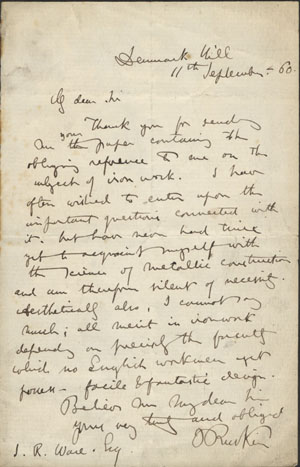 Denmark Hill
11th September - 60.
My dear Sir
Thank you for sending
me your the paper containing the
obliging reference to me on the
subject of iron work. I have
often wished to enter upon the
important questions connected with
it. but have never had time
yet to acquaint myself with
the science of metallic construction
and am therefore silent of necessity.
Aesthetically also, I cannot say
much; all merit in ironwork
depending on precisely the faculty
which no English workmen yet
possess - facile & fantastic design.
Believe me my dear Sir
yours very truly and obliged
J Ruskin
J. R. Ware. Esq